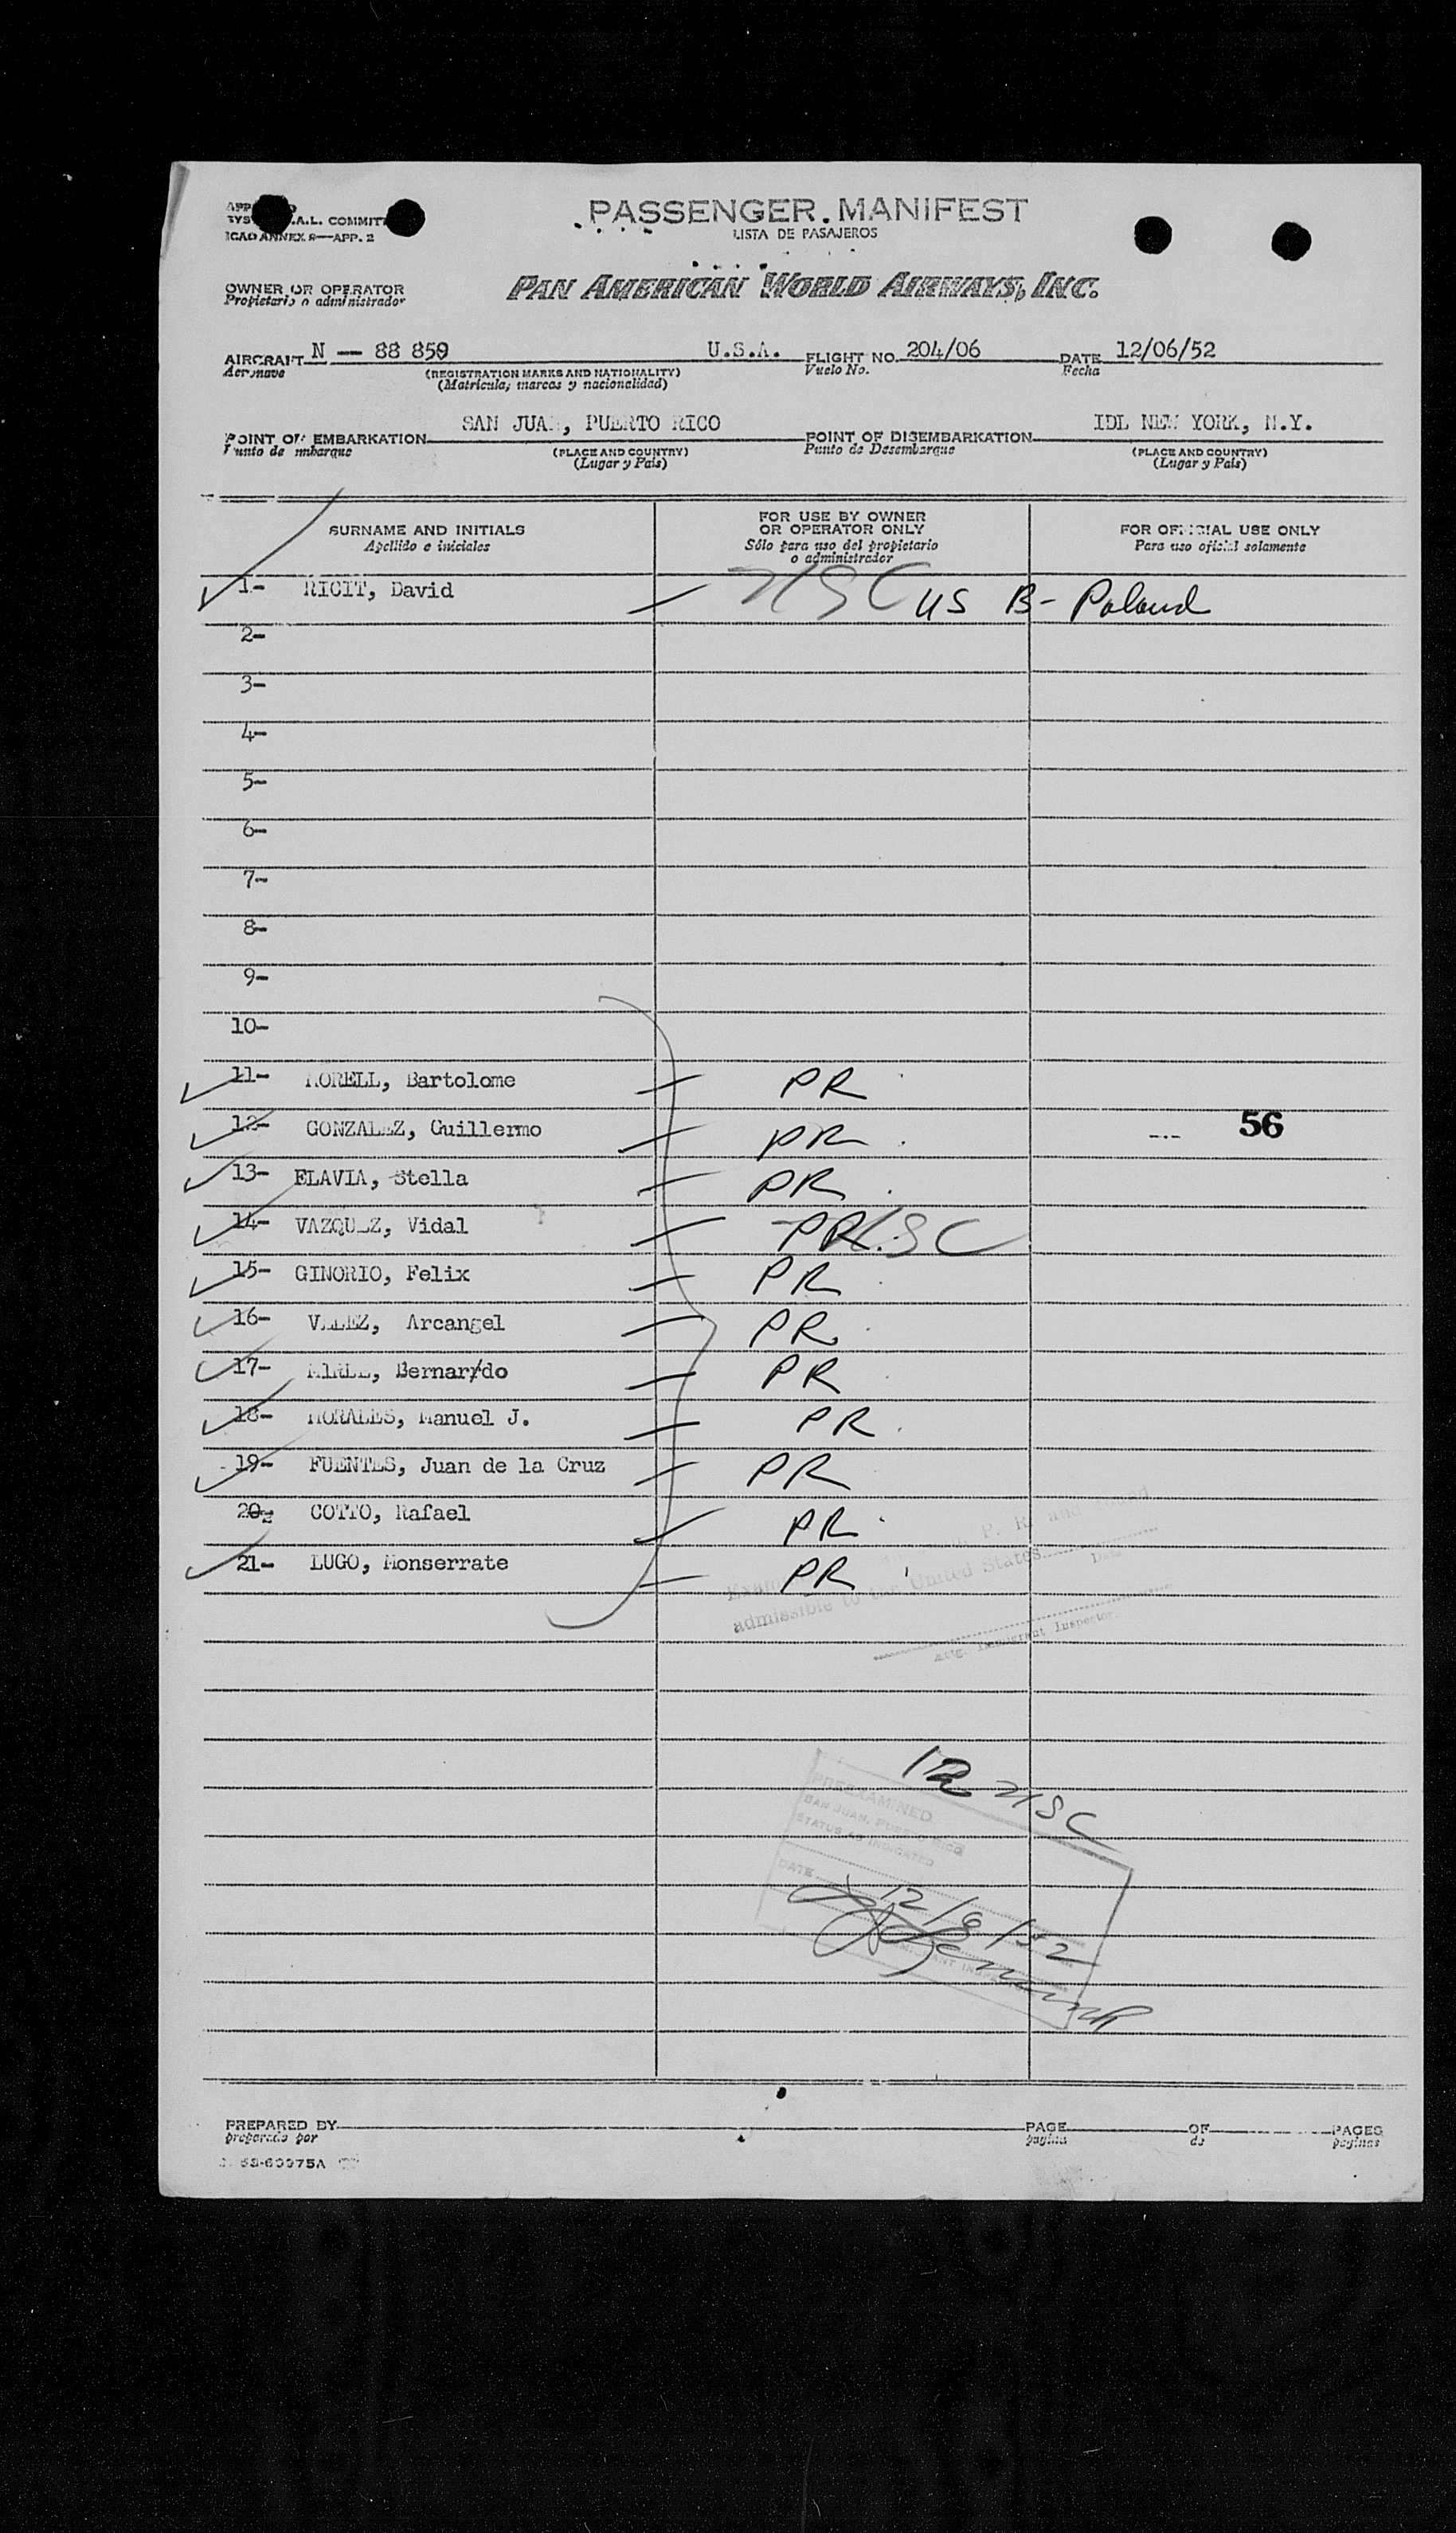 PASSENGER MANIFEST
LISTA DE PASAJEROS
ICAO ANNEX 9—APP. 2
OWNER OR OPERATOR
Propietario o administrador
PAN AMERICAN WORLD AIRWAYS, INC.
AIRCRAFT N — 88 859 U.S.A. FLIGHT NO. 204/06 DATE 12/06/52
Aeronave (REGISTRATION MARKS AND NATIONALITY) Vuelo No. Fecha
(Matrícula, marcas y nacionalidad)
POINT OF EMBARKATION SAN JUAN, PUERTO RICO POINT OF DISEMBARKATION IDL NEW YORK, N.Y.
Punto de embarque (PLACE AND COUNTRY) Punto de Desembarque (PLACE AND COUNTRY)
(Lugar y País) (Lugar y País)
SURNAME AND INITIALS
Apellido e iniciales
FOR USE BY OWNER
OR OPERATOR ONLY
Sólo para uso del propietario
o administrador
FOR OFFICIAL USE ONLY
Para uso oficial solamente
1- RICIT, David USC US B- Poland
2-
3-
4-
5-
6-
7-
8-
9-
10-
11- MORELL, Bartolome PR
12- GONZALEZ, Guillermo PR 56
13- FLAVIA, Stella PR
14- VAZQUEZ, Vidal PR USC
15- GINORIO, Felix PR
16- VELEZ, Arcangel PR
17- Bernar/do PR
18- MORALES, Manuel J. PR
19- FUENTES, Juan de la Cruz PR
20- COTTO, Rafael PR
21- LUGO, Monserrate PR
P. R. and
admissible to the United States
Immigrant Inspector
12 USC
PREEXAMINED
SAN JUAN, PUERTO RICO
STATUS AS INDICATED
DATE 12/6/52
PREPARED BY PAGE OF PAGES
preparado por pagina de paginas